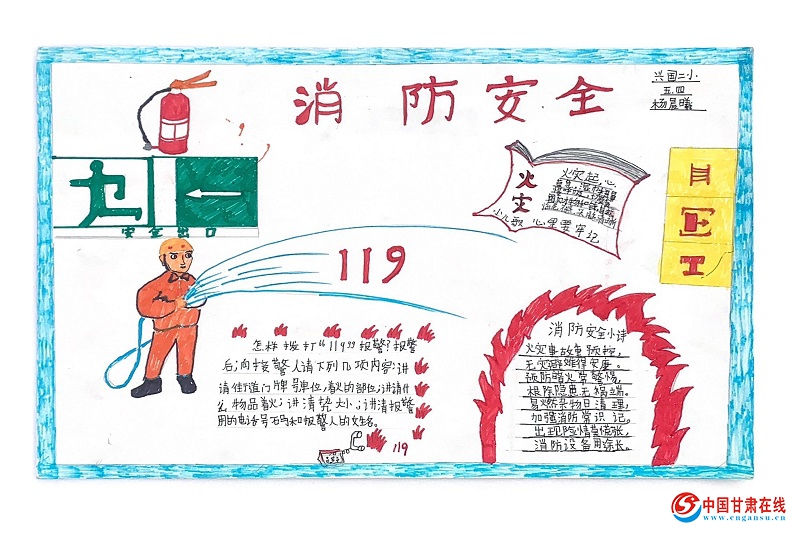 消防安全
兴国二小
五.四
杨晨曦
安全出口
119
火灾
火灾起心
小儿歌 心里要牢记
怎样拨打“119”报警?报警
后;向接警人请下列几项内容:讲
请住道门牌号单位,着火的部位;讲请什
么物品着火;讲清势大小;讲清报警
用的电话号码和报警人的姓名。
119
消防安全小诗
火灾事故重预控,
无灾避难得安康。
被防暗火常警惕,
根除隐患无祸端。
易燃杂物日清理,
加强消防常识记。
出现险情莫慌张,
消防设备用途长。
中国甘肃在线
www.cngansu.cn